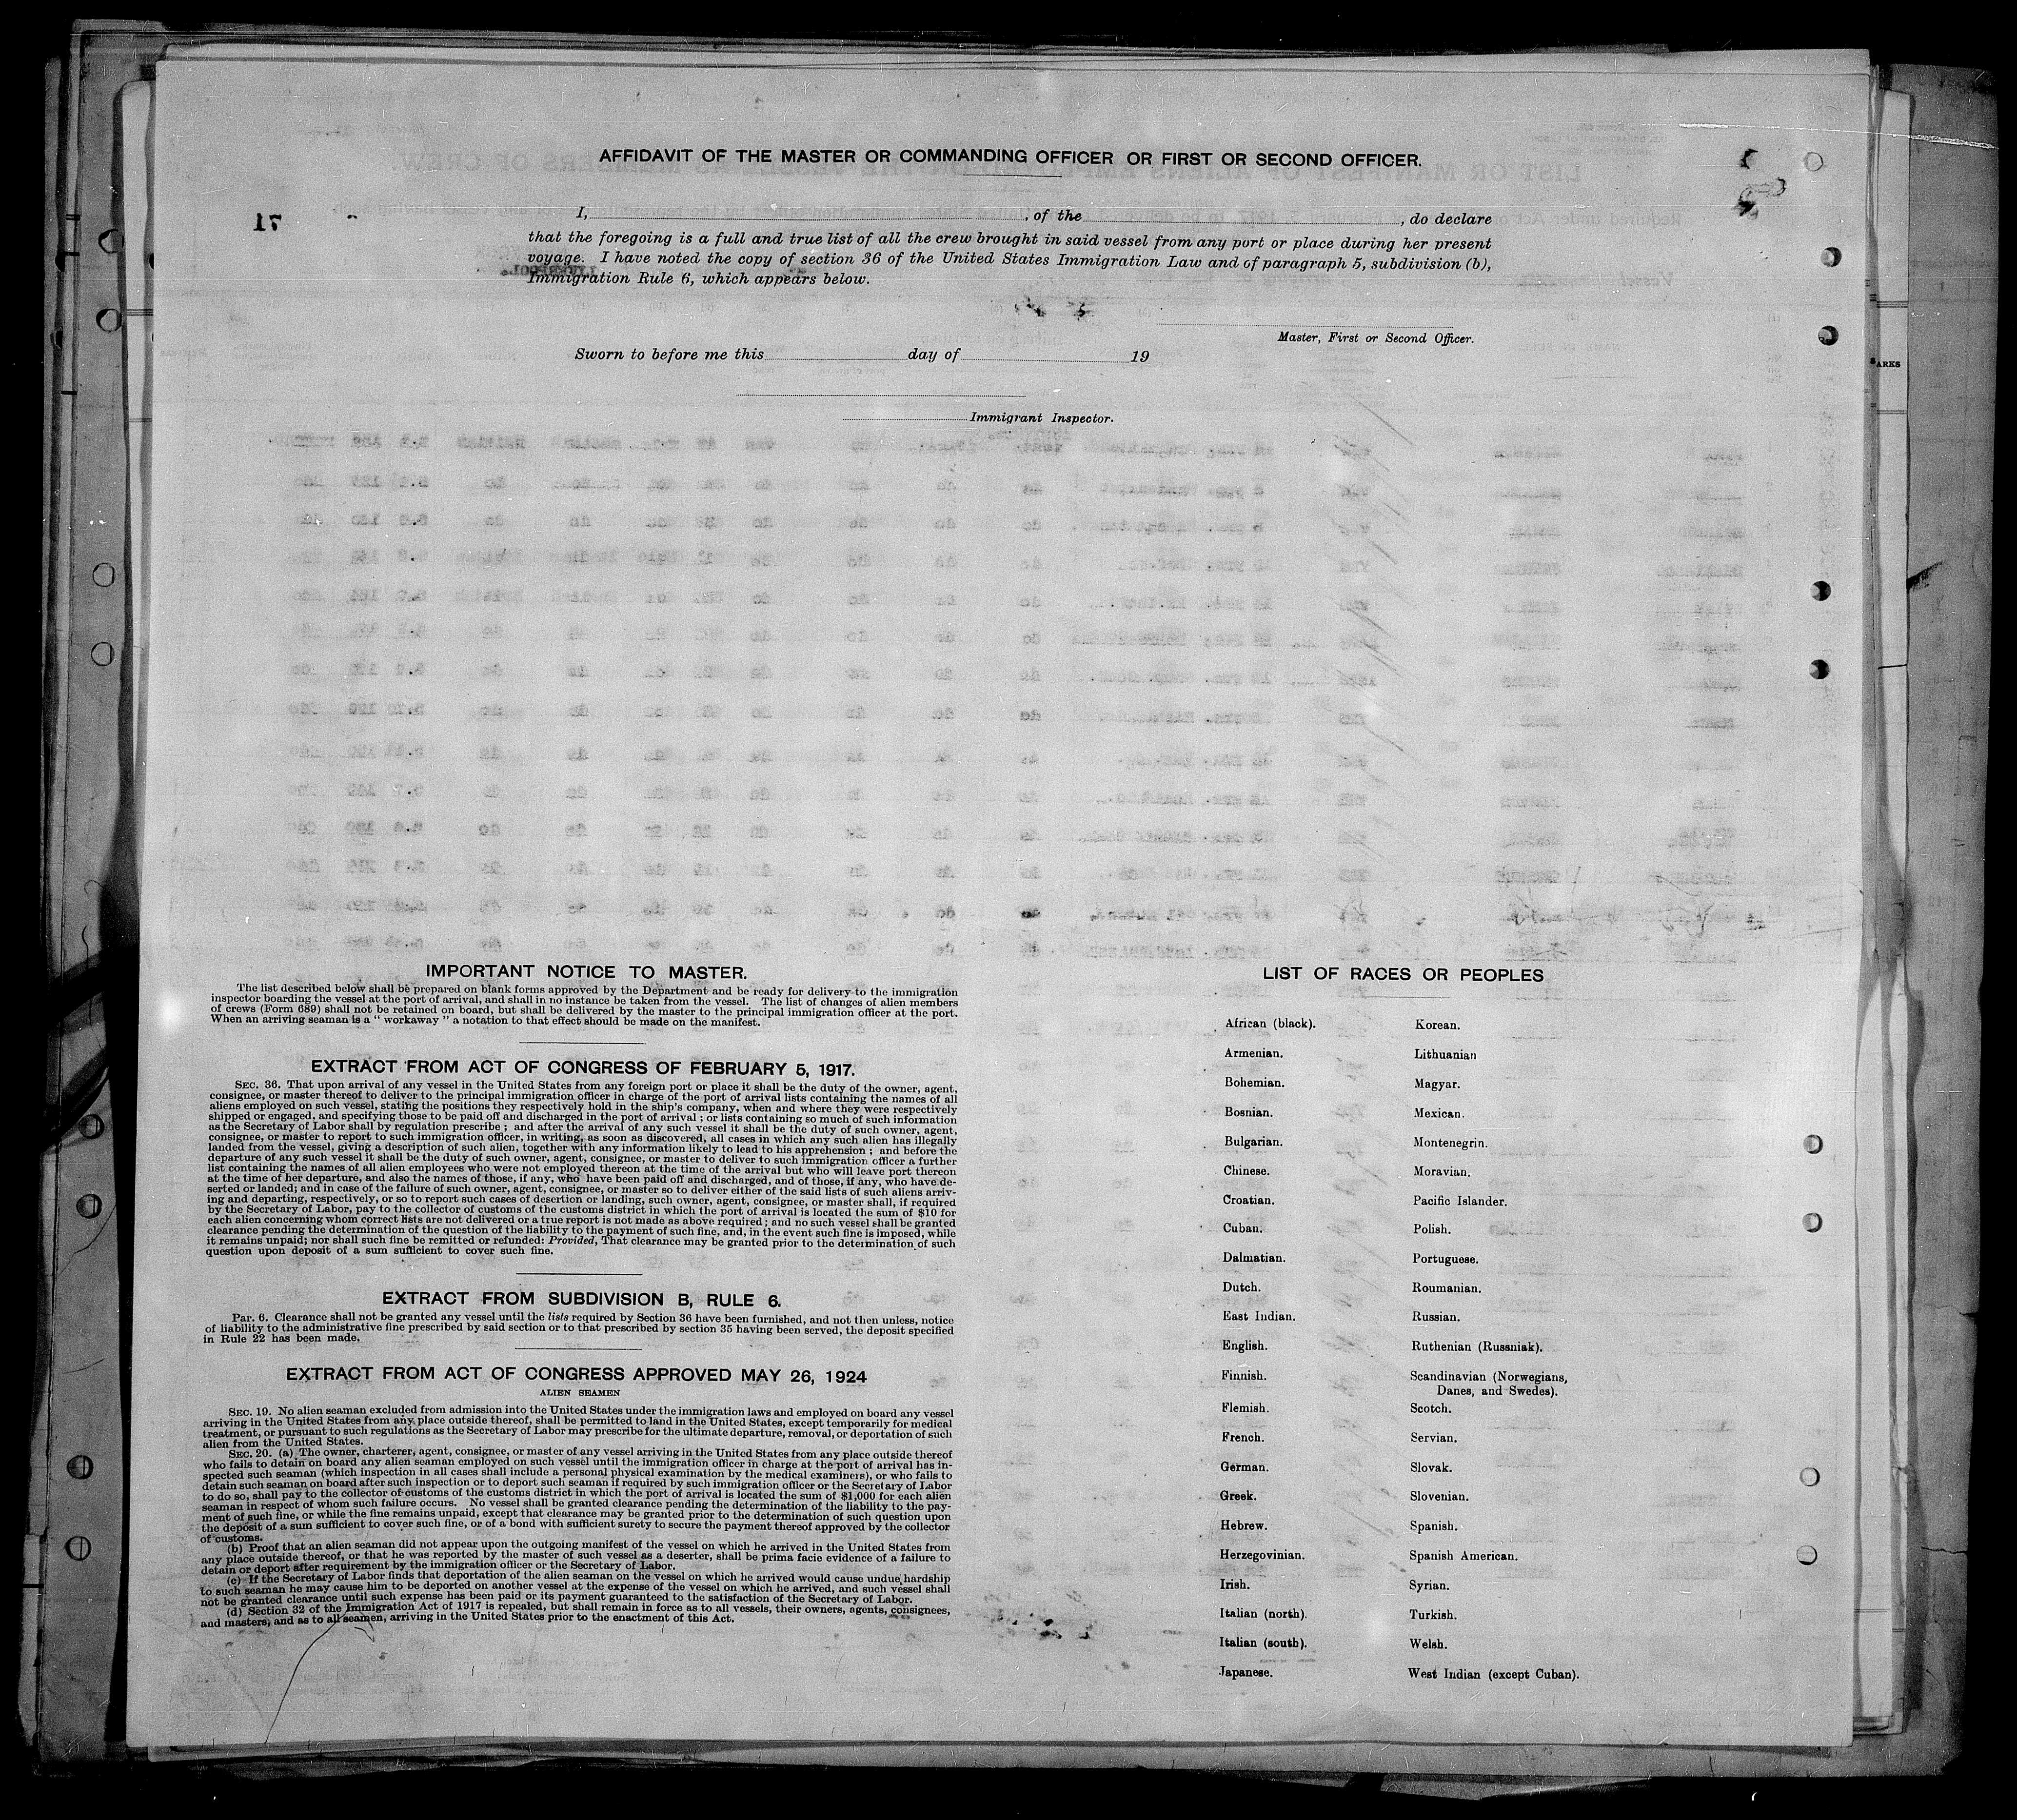 AFFIDAVIT OF THE MASTER OR COMMANDING OFFICER OR FIRST OR SECOND OFFICER.
17
I, , of the , do declare
that the foregoing is a full and true list of all the crew brought in said vessel from any port or place during her present
voyage. I have noted the copy of section 36 of the United States Immigration Law and of paragraph 5, subdivision (b),
Immigration Rule 6, which appears below.
Master, First or Second Officer.
Sworn to before me this day of 19
Immigrant Inspector.
ARKS
IMPORTANT NOTICE TO MASTER.
The list described below shall be prepared on blank forms approved by the Department and be ready for delivery to the immigration
inspector boarding the vessel at the port of arrival, and shall in no instance be taken from the vessel. The list of changes of alien members
of crews (Form 689) shall not be retained on board, but shall be delivered by the master to the principal immigration officer at the port.
When an arriving seaman is a " workaway " a notation to that effect should be made on the manifest.
EXTRACT FROM ACT OF CONGRESS OF FEBRUARY 5, 1917.
SEC. 36. That upon arrival of any vessel in the United States from any foreign port or place it shall be the duty of the owner, agent,
consignee, or master thereof to deliver to the principal immigration officer in charge of the port of arrival lists containing the names of all
aliens employed on such vessel, stating the positions they respectively hold in the ship's company, when and where they were respectively
shipped or engaged, and specifying those to be paid off and discharged in the port of arrival ; or lists containing so much of such information
as the Secretary of Labor shall by regulation prescribe ; and after the arrival of any such vessel it shall be the duty of such owner, agent,
consignee, or master to report to such immigration officer, in writing, as soon as discovered, all cases in which any such alien has illegally
landed from the vessel, giving a description of such alien, together with any information likely to lead to his apprehension ; and before the
departure of any such vessel it shall be the duty of such owner, agent, consignee, or master to deliver to such immigration officer a further
list containing the names of all alien employees who were not employed thereon at the time of the arrival but who will leave port thereon
at the time of her departure, and also the names of those, if any, who have been paid off and discharged, and of those, if any, who have de-
serted or landed; and in case of the failure of such owner, agent, consignee, or master so to deliver either of the said lists of such aliens arriv-
ing and departing, respectively, or so to report such cases of desertion or landing, such owner, agent, consignee, or master shall, if required
by the Secretary of Labor, pay to the collector of customs of the customs district in which the port of arrival is located the sum of $10 for
each alien concerning whom correct lists are not delivered or a true report is not made as above required ; and no such vessel shall be granted
clearance pending the determination of the question of the liability to the payment of such fine, and, in the event such fine is imposed, while
it remains unpaid; nor shall such fine be remitted or refunded: Provided, That clearance may be granted prior to the determination of such
question upon deposit of a sum sufficient to cover such fine.
EXTRACT FROM SUBDIVISION B, RULE 6.
Par. 6. Clearance shall not be granted any vessel until the lists required by Section 36 have been furnished, and not then unless, notice
of liability to the administrative fine prescribed by said section or to that prescribed by section 35 having been served, the deposit specified
in Rule 22 has been made.
EXTRACT FROM ACT OF CONGRESS APPROVED MAY 26, 1924
ALIEN SEAMEN
SEC. 19. No alien seaman excluded from admission into the United States under the immigration laws and employed on board any vessel
arriving in the United States from any place outside thereof, shall be permitted to land in the United States, except temporarily for medical
treatment, or pursuant to such regulations as the Secretary of Labor may prescribe for the ultimate departure, removal, or deportation of such
alien from the United States.
SEC. 20. (a) The owner, charterer, agent, consignee, or master of any vessel arriving in the United States from any place outside thereof
who fails to detain on board any alien seaman employed on such vessel until the immigration officer in charge at the port of arrival has in-
spected such seaman (which inspection in all cases shall include a personal physical examination by the medical examiners), or who fails to
detain such seaman on board after such inspection or to deport such seaman if required by such immigration officer or the Secretary of Labor
to do so, shall pay to the collector of customs of the customs district in which the port of arrival is located the sum of $1,000 for each alien
seaman in respect of whom such failure occurs. No vessel shall be granted clearance pending the determination of the liability to the pay-
ment of such fine, or while the fine remains unpaid, except that clearance may be granted prior to the determination of such question upon
the deposit of a sum sufficient to cover such fine, or of a bond with sufficient surety to secure the payment thereof approved by the collector
of customs.
(b) Proof that an alien seaman did not appear upon the outgoing manifest of the vessel on which he arrived in the United States from
any place outside thereof, or that he was reported by the master of such vessel as a deserter, shall be prima facie evidence of a failure to
detain or deport after requirement by the immigration officer or the Secretary of Labor.
(c) If the Secretary of Labor finds that deportation of the alien seaman on the vessel on which he arrived would cause undue hardship
to such seaman he may cause him to be deported on another vessel at the expense of the vessel on which he arrived, and such vessel shall
not be granted clearance until such expense has been paid or its payment guaranteed to the satisfaction of the Secretary of Labor.
(d) Section 32 of the Immigration Act of 1917 is repealed, but shall remain in force as to all vessels, their owners, agents, consignees,
and masters, and as to all seamen, arriving in the United States prior to the enactment of this Act.
LIST OF RACES OR PEOPLES
African (black).
Armenian.
Bohemian.
Bosnian.
Bulgarian.
Chinese.
Croatian.
Cuban.
Dalmatian.
Dutch.
East Indian.
English.
Finnish.
Flemish.
French.
German.
Greek.
Hebrew.
Herzegovinian.
Irish.
Italian (north).
Italian (south).
Japanese.
Korean.
Lithuanian
Magyar.
Mexican.
Montenegrin.
Moravian.
Pacific Islander.
Polish.
Portuguese.
Roumanian.
Russian.
Ruthenian (Russniak).
Scandinavian (Norwegians,
Danes, and Swedes).
Scotch.
Servian.
Slovak.
Slovenian.
Spanish.
Spanish American.
Syrian.
Turkish.
Welsh.
West Indian (except Cuban).